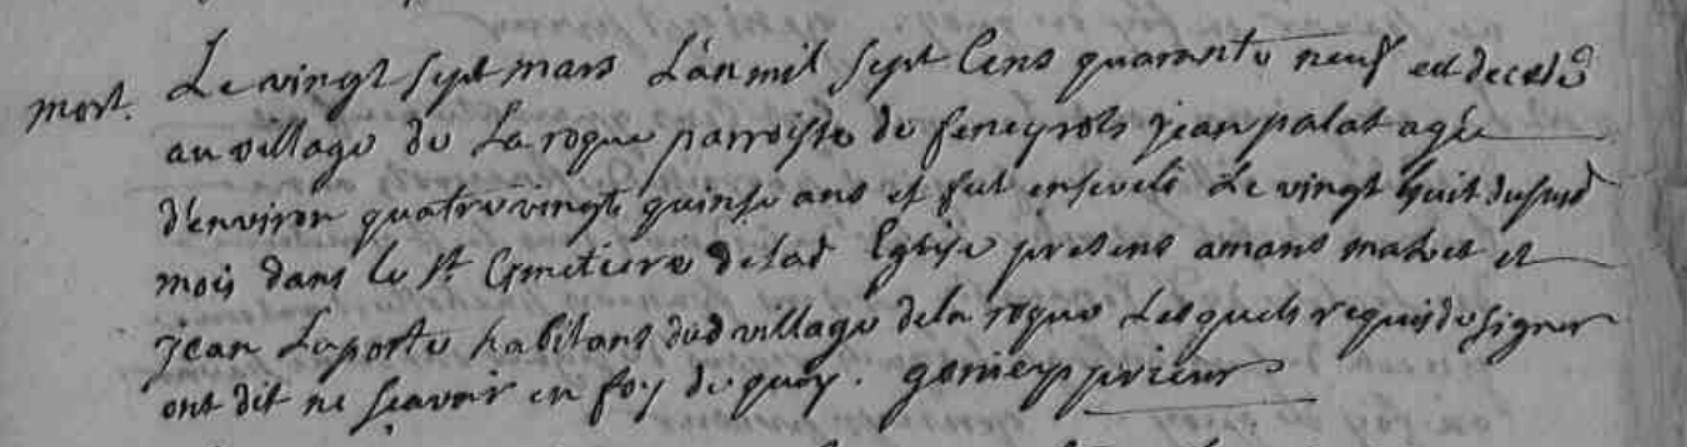 Le vingt sept mars L'an mil sept Cens quarante neuf est decedé
mort.
au village de La roque parroisse de feneyrols jean palat agée
d'environ quatrevingts quinse ans et fut enseveli Le vingt huit dususd
mois dans le St Cymetiere delad Eglise presens amans mahet et
jean Laporte habitans dud village dela roque Lesquels requis de signer
ont dit ne sçavoir en foy de quoy. genieys prieur